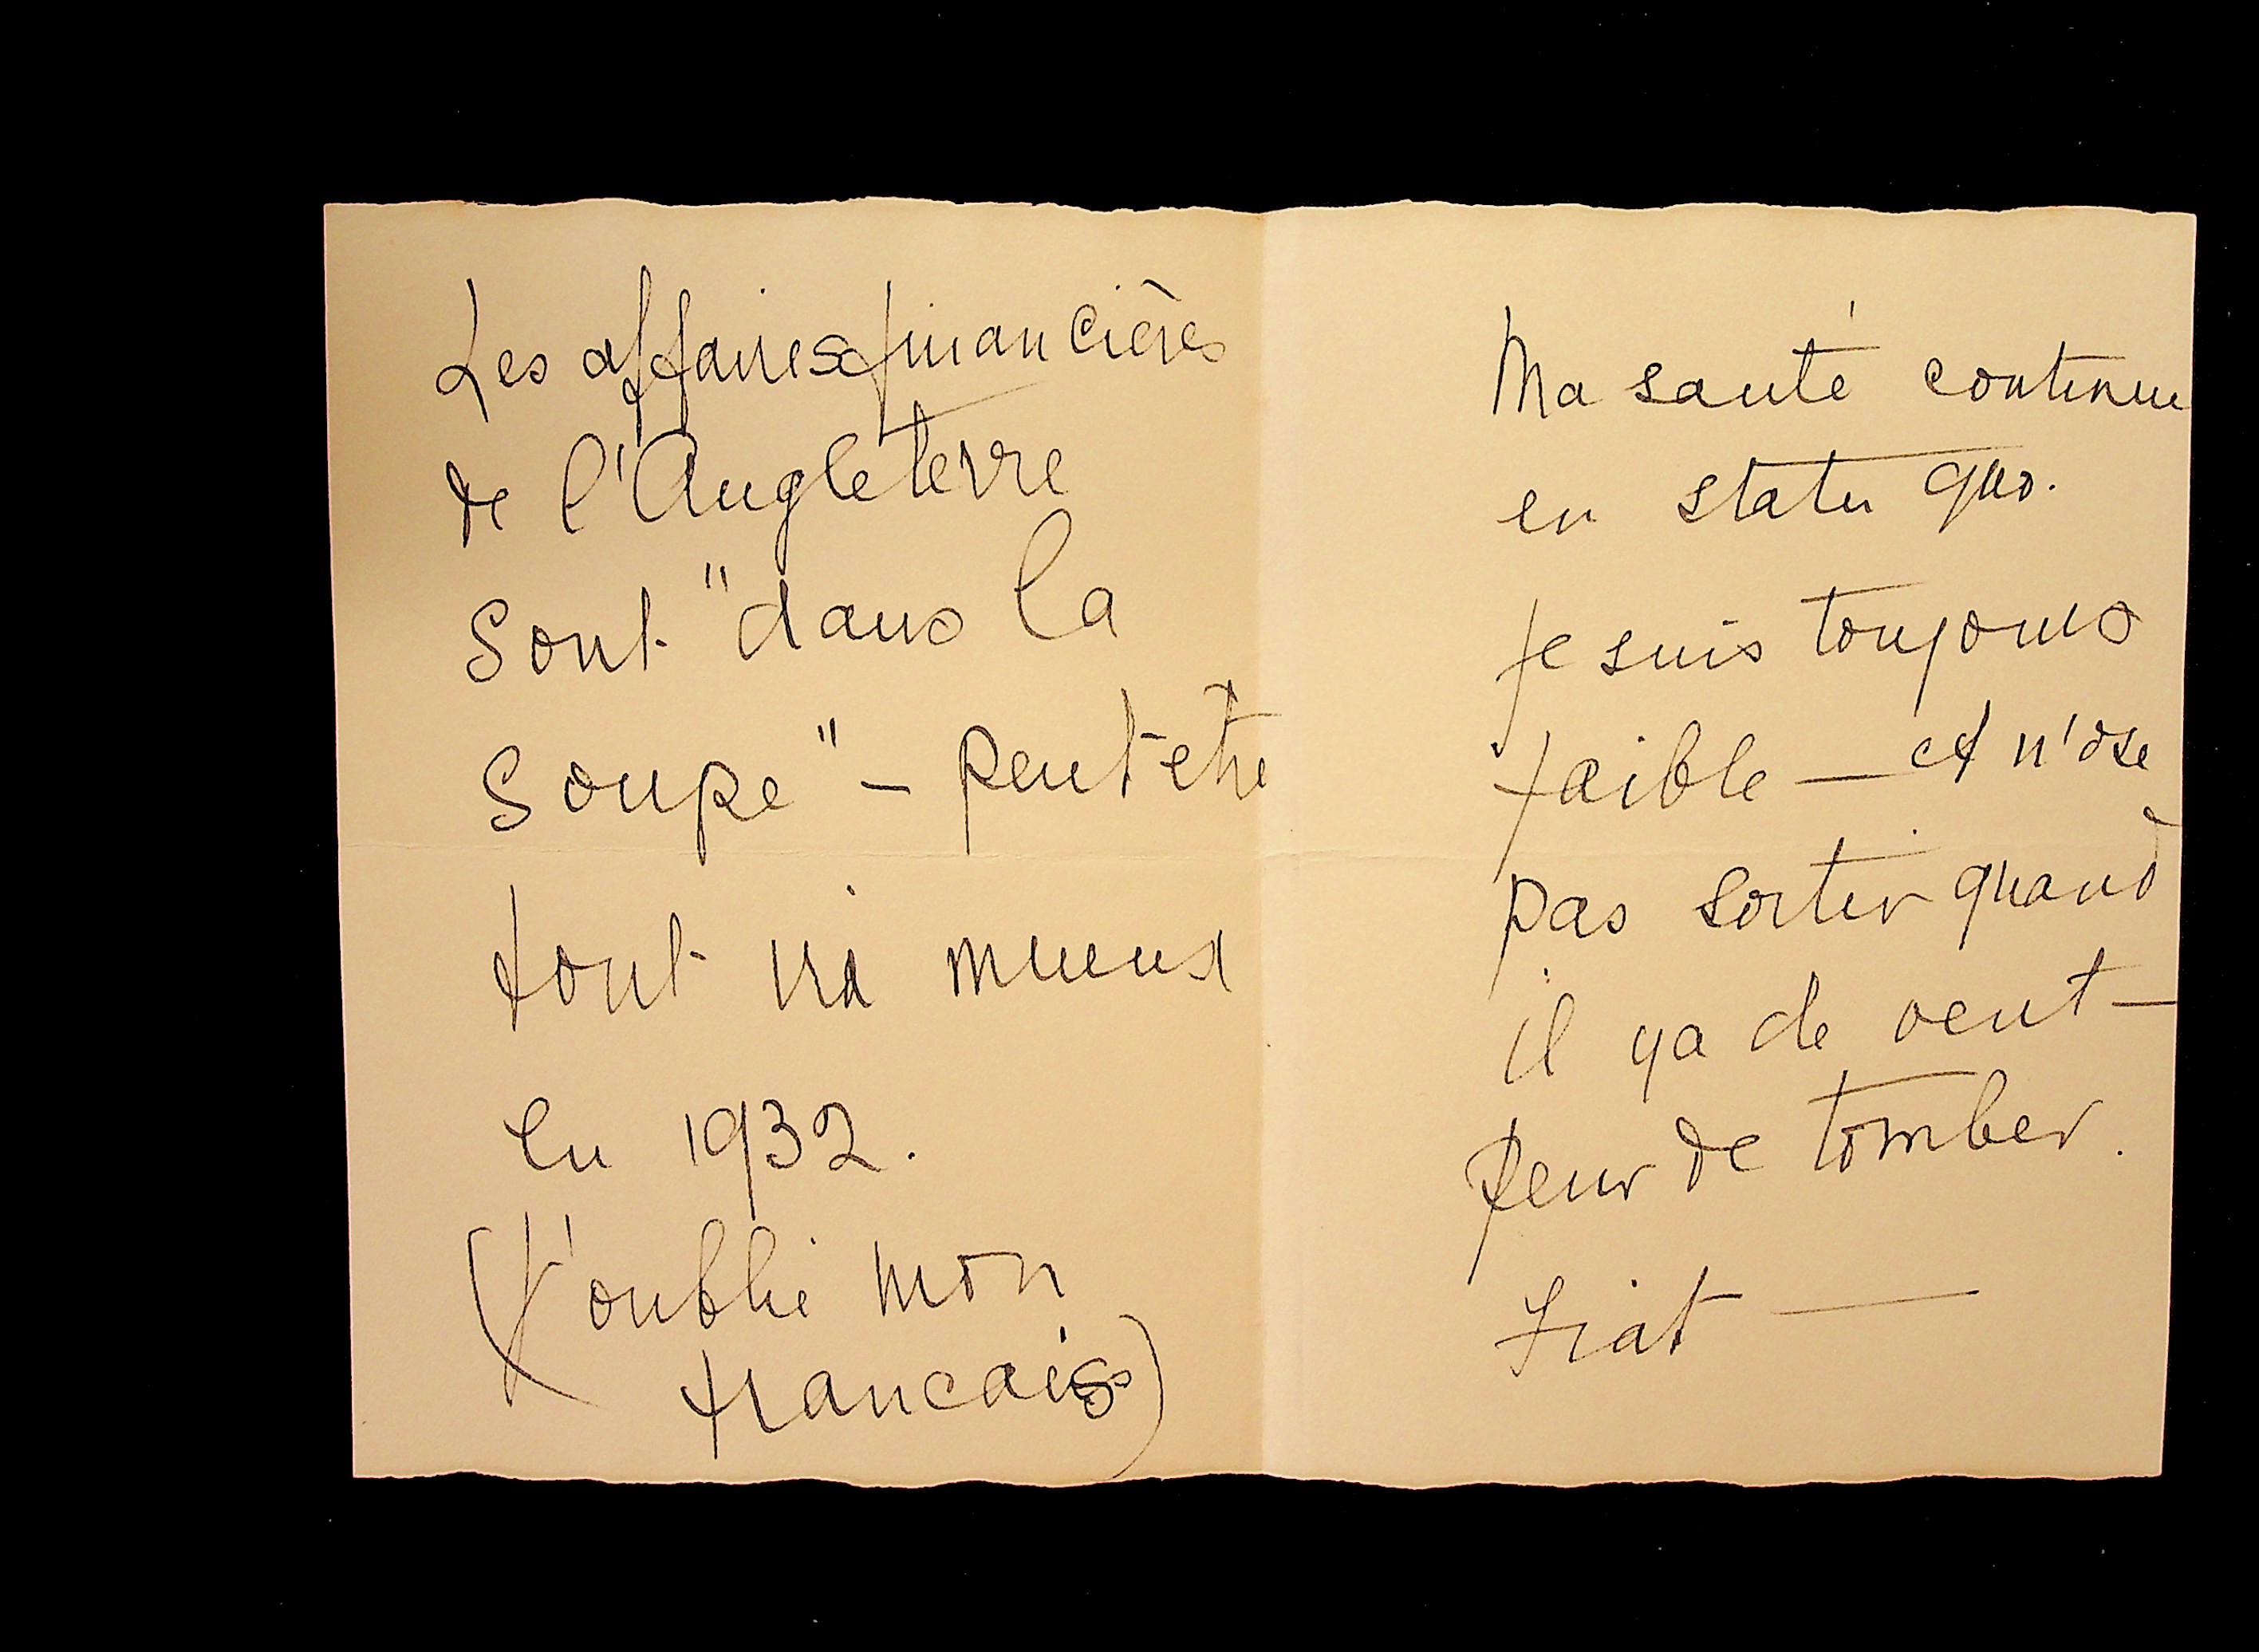 Les affaires financières
de l'Angleterre
sont "dans la
soupe" – peut etre
tout ira mieux
en 1932.
(J'oublie mon
francais)
Ma santé continue
en statu quo.
Je suis toujours
faible — et n'ose
pas sortir quand
il y a de vent –
peur de tomber.
Fiat —